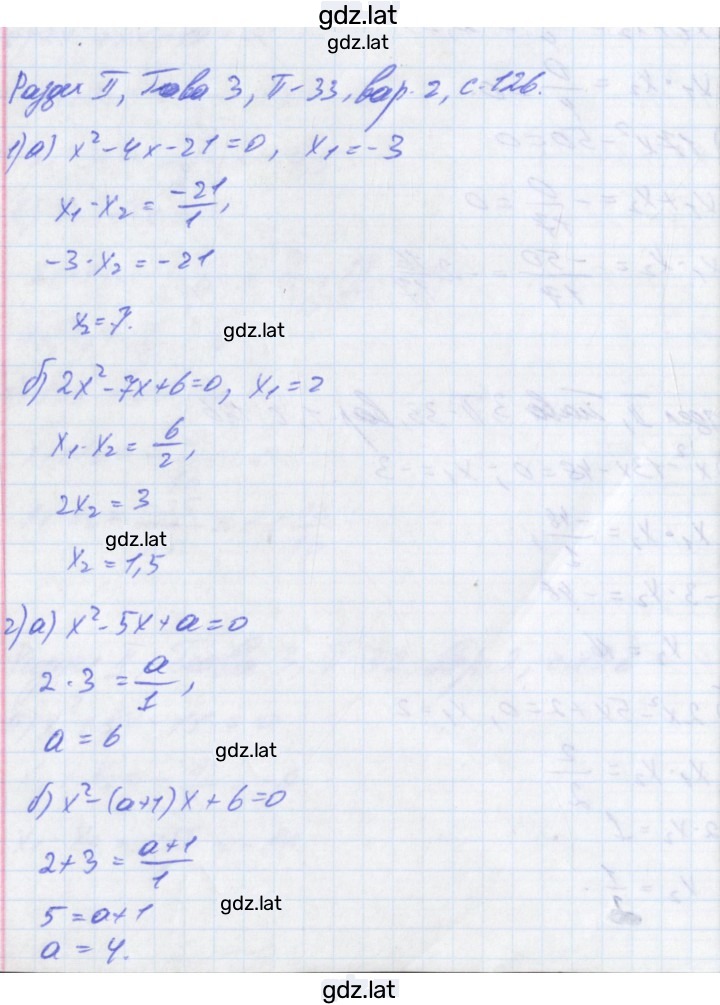 gdz.lat
gdz.lat
Раздел II, Глава 3, П-33, вар. 2, с. 126.
1) а) x² - 4x - 21 = 0, x₁ = -3
x₁ · x₂ = -21/1,
-3 · x₂ = -21
x₂ = 7.
gdz.lat
б) 2x² - 7x + 6 = 0, x₁ = 2
x₁ · x₂ = 6/2,
2x₂ = 3
gdz.lat
x₂ = 1,5
2) а) x² - 5x + a = 0
2 · 3 = a/1,
a = 6
gdz.lat
б) x² - (a+1)x + 6 = 0
2 + 3 = a+1/1
5 = a+1
gdz.lat
a = 4.
gdz.lat
gdz.lat